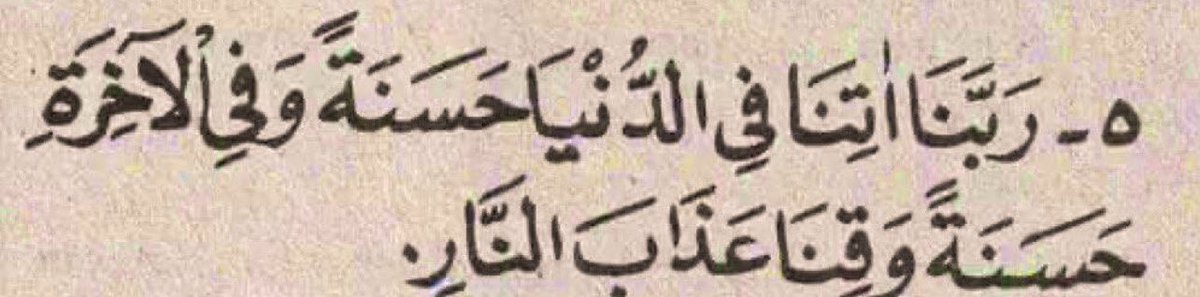 ٥ - رَبَّنَا اٰتِنَا فِي الدُّنْيَا حَسَنَةً وَفِي اْلآخِرَةِ
حَسَنَةً وَقِنَا عَذَابَ النَّارِ.